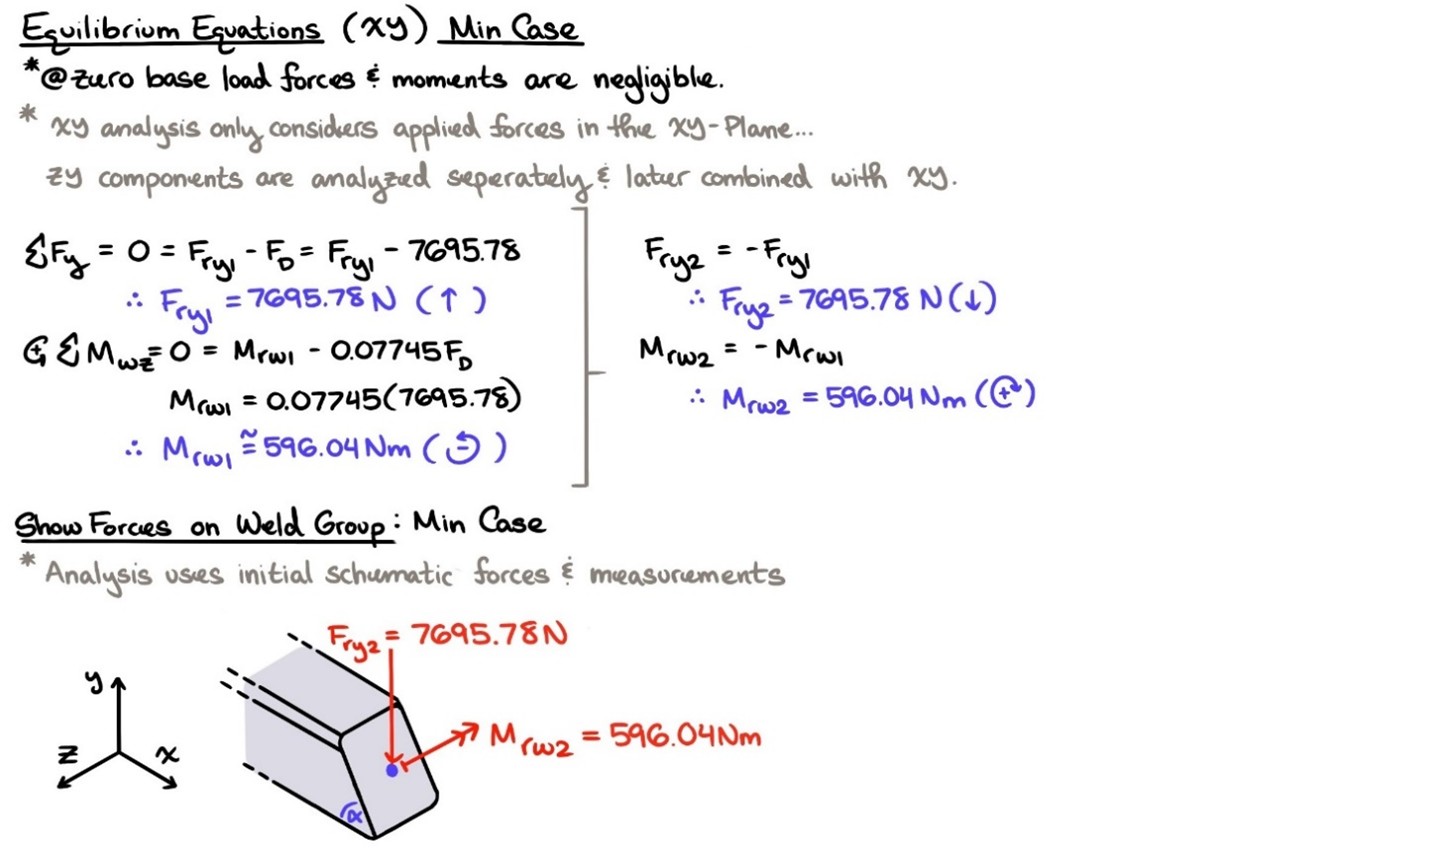 Equilibrium Equations (xy) Min Case
*@zero base load forces & moments are negligible.
* xy analysis only considers applied forces in the xy-Plane...
zy components are analyzed seperately & later combined with xy.
ΣFy = 0 = Fry1 - FD = Fry1 - 7695.78
∴ Fry1 = 7695.78 N (↑)
↺+ ΣMwz = 0 = Mrw1 - 0.07745FD
Mrw1 = 0.07745(7695.78)
∴ Mrw1 ≅ 596.04 Nm (↺)
Fry2 = -Fry1
∴ Fry2 = 7695.78 N (↓)
Mrw2 = -Mrw1
∴ Mrw2 = 596.04 Nm (↻+)
Show Forces on Weld Group: Min Case
* Analysis uses initial schematic forces & measurements
Fry2 = 7695.78N
y
z
x
Mrw2 = 596.04Nm
α